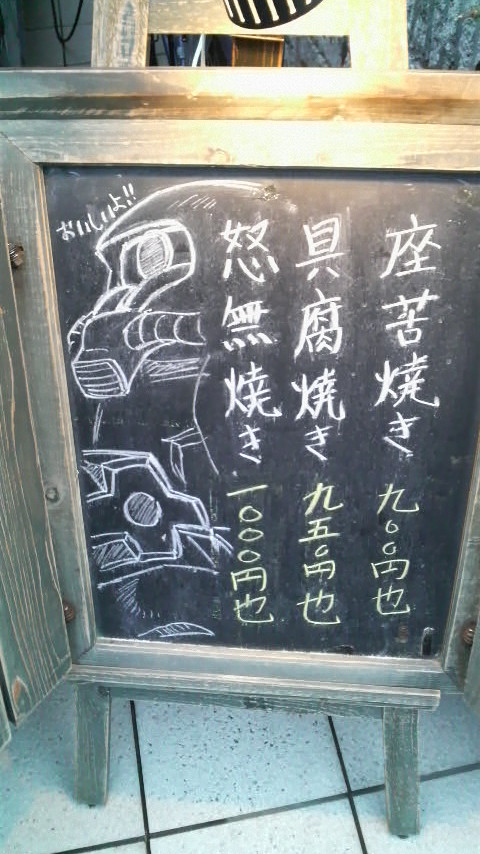 座苦焼き 九〇〇円也
具腐焼き 九五〇円也
怒無焼き 一〇〇〇円也
おいしいよ!!